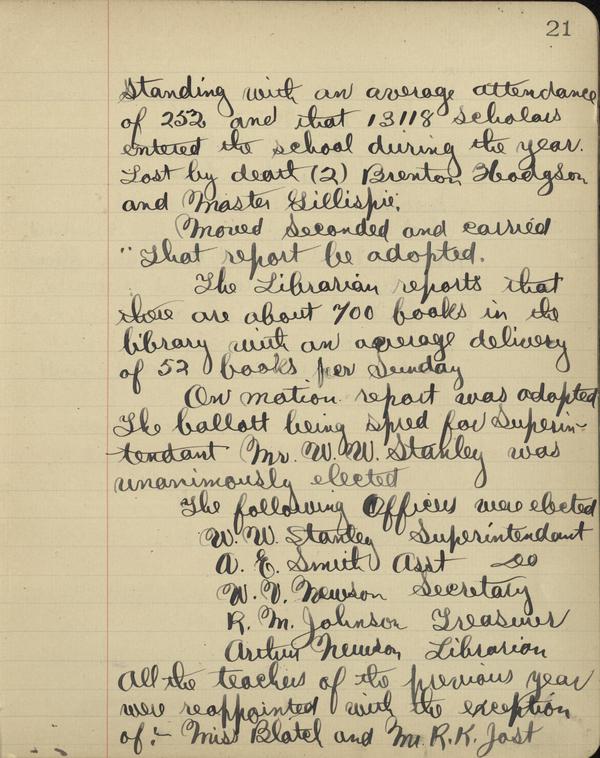 21
standing with an average attendance
of 252 and that 13118 scholars
entered the school during the year.
Lost by death (2) Brenton Hodgson
and Master Gillispie.
Moved seconded and carried
"That report be adopted.
The Librarian reports that
there are about 700 books in the
library with an average delivery
of 52 books per Sunday
On motion report was adopted
The ballott being spred for Superin-
tendant Mr. W. W. Stanley was
unanimously elected
The following Officers were elected
W. W. Stanley Superintendant
A. E. Smith Asst Do
W. V. Newson Secretary
R. M. Johnson Treasurer
Arthur Newson Librarian
All the teachers of the previous year
were reappointed with the exception
of:- Miss Blatel and Mr. R. K. Jost